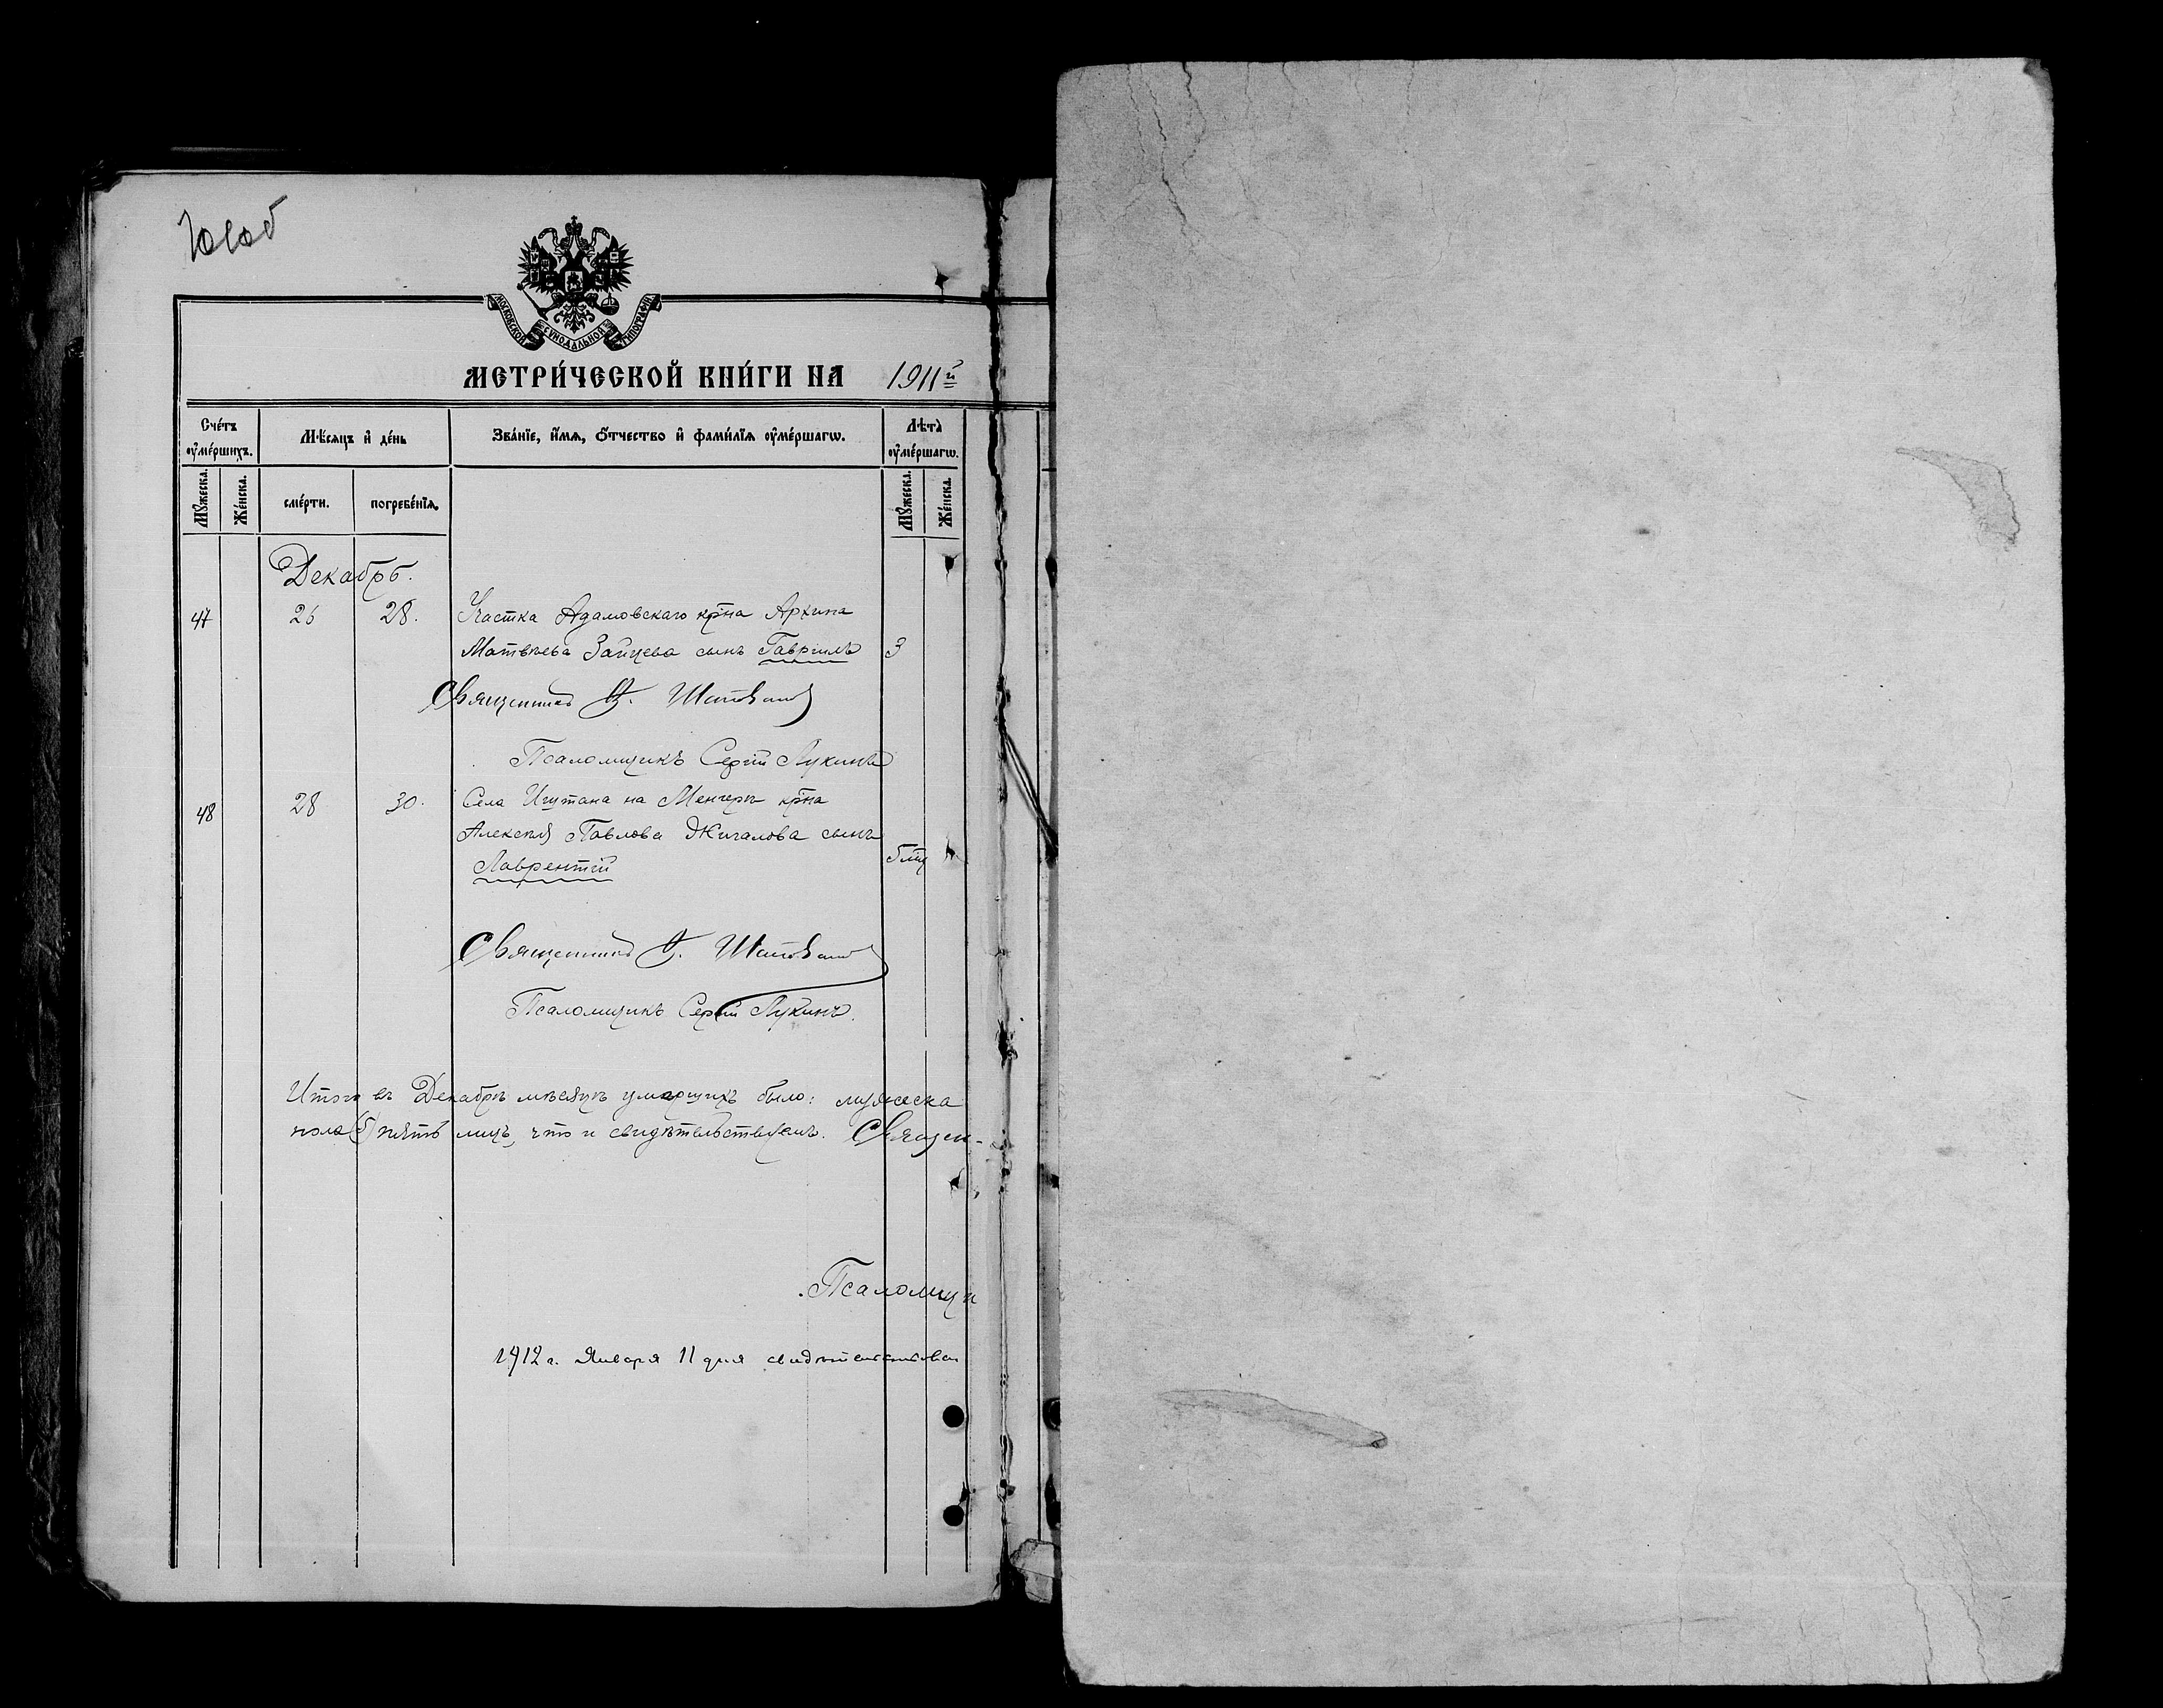 МОСКОВСКОЙ СѴНОДАЛЬНОЙ ТИПОГРАФІИ
МЕТРИ́ЧЕСКОЙ КНИ́ГИ НА 1911 й
Сче́тъ ᲂу҆ме́ршихъ.
Мѣ́сяцъ и҆ де́нь
Зва́нїе, и҆́мѧ, ѻ҆́тчество и҆ фами́лїѧ ᲂу҆ме́ршагѡ.
Лѣта̀ ᲂу҆ме́ршагѡ.
Мꙋ́жеска.
Же́нска.
сме́рти.
погребе́нїѧ.
Мꙋ́жеска.
Же́нска.
Декабрь.
47 26 28. Участка Адамовскаго кр̃на Архипа
Матвѣева Зайцева сынъ Гавріилъ 3
Священникъ
Псаломщикъ Сергій Лукинъ
48 28 30. Села Ишутана на Менгерѣ кр̃на
Алексѣя Павлова Жигалова сынъ
Лаврентій 5 мц
Священникъ
Псаломщикъ Сергій Лукинъ.
Итого въ Декабрѣ мѣсяцѣ умершихъ было: мужеска
пола (5) пять лицъ, что и свидѣтельствуемъ. Священ-
Псаломщи
1912 г. Января 11 дня свидѣтельствовал